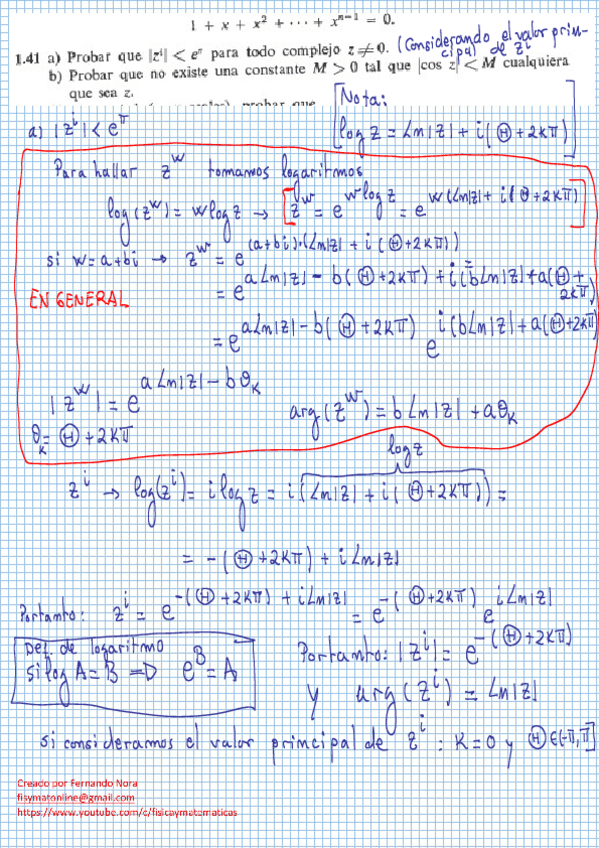 1 + x + x² + ··· + xⁿ⁻¹ = 0.
1.41 a) Probar que |zⁱ| < e^π para todo complejo z ≠ 0. (Considerando el valor principal de zⁱ
b) Probar que no existe una constante M > 0 tal que |cos z| < M cualquiera
que sea z.
[Nota:
log z = Ln|z| + i(Θ+2kπ)]
a) |zⁱ| < e^π
Para hallar z^w tomamos logaritmos
log(z^w) = w log z → [z^w = e^(w log z) = e^(w(Ln|z| + i(Θ+2kπ)))]
si w = a+bi → z^w = e^((a+bi)·(Ln|z| + i(Θ+2kπ))) =
= e^(aLn|z| - b(Θ+2kπ) + i(bLn|z| + a(Θ+2kπ)))
EN GENERAL
= e^(aLn|z| - b(Θ+2kπ)) e^(i(bLn|z| + a(Θ+2kπ)))
|z^w| = e^(aLn|z| - bθ_k)
arg(z^w) = bLn|z| + aθ_k
θ_k = Θ+2kπ
log z
zⁱ → log(zⁱ) = i log z = i(Ln|z| + i(Θ+2kπ)) =
= -(Θ+2kπ) + iLn|z|
Por tanto: zⁱ = e^(-(Θ+2kπ) + iLn|z|) = e^(-(Θ+2kπ)) e^(iLn|z|)
Def. de logaritmo
si log A = B ⇒ e^B = A
Por tanto: |zⁱ| = e^(-(Θ+2kπ))
y arg(zⁱ) = Ln|z|
si consideramos el valor principal de zⁱ : k=0 y Θ∈(-π,π]
Creado por Fernando Nora
fisymatonline@gmail.com
https://www.youtube.com/c/fisicaymatematicas